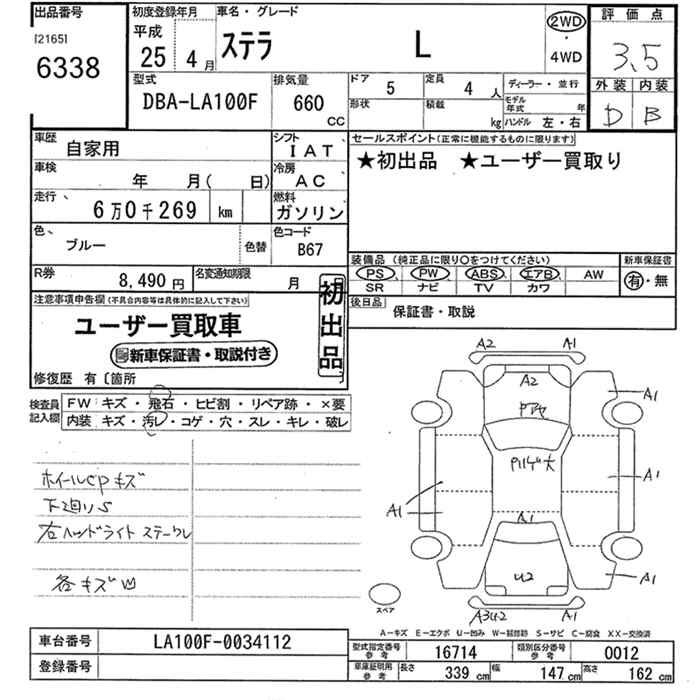 出品番号
[2165]
6338
初度登録年月
平成
25 4月
車名・グレード
ステラ L
2WD
・
4WD
評価点
3.5
外装 内装
D B
型式
DBA-LA100F
排気量
660
CC
ドア 5
定員 4人
ディーラー・並行
形状
積載 kg
モデル年式 年
ハンドル 左・右
車歴
自家用
シフト
IAT
車検
年 月( 日)
冷房
AC
走行
6万0千269 km
燃料
ガソリン
色
ブルー
色替
色コード
B67
R券
8,490円
名変通知期限
月
セールスポイント(正常に機能するものに限ります)
★初出品 ★ユーザー買取り
装備品(純正品に限り○をつけてください)
PS PW ABS エアB AW
SR ナビ TV カワ
新車保証書
有・無
後日品
保証書・取説
注意事項申告欄(不具合内容等は具体的に記入して下さい)
ユーザー買取車
新車保証書・取説付き
初出品
修復歴 有〔箇所 〕
検査員記入欄
FW キズ・飛石・ヒビ割・リペア跡・×要
内装 キズ・汚レ・コゲ・穴・スレ・キレ・破レ
ホイールCPキズ
下廻りS
右ヘッドライト
各キズ凹
A2 A1
A2
A1
A1
A1
A1
A1
U2
A1
A3U2 A1
スペア
A-キズ E-エクボ U-凹み W-補修跡 S-サビ C-腐食 XX-交換済
車台番号
LA100F-0034112
登録番号
型式指定番号 参考
16714
類別区分番号 参考
0012
車庫証明用 参考
長さ 339 cm 幅 147 cm 高さ 162 cm